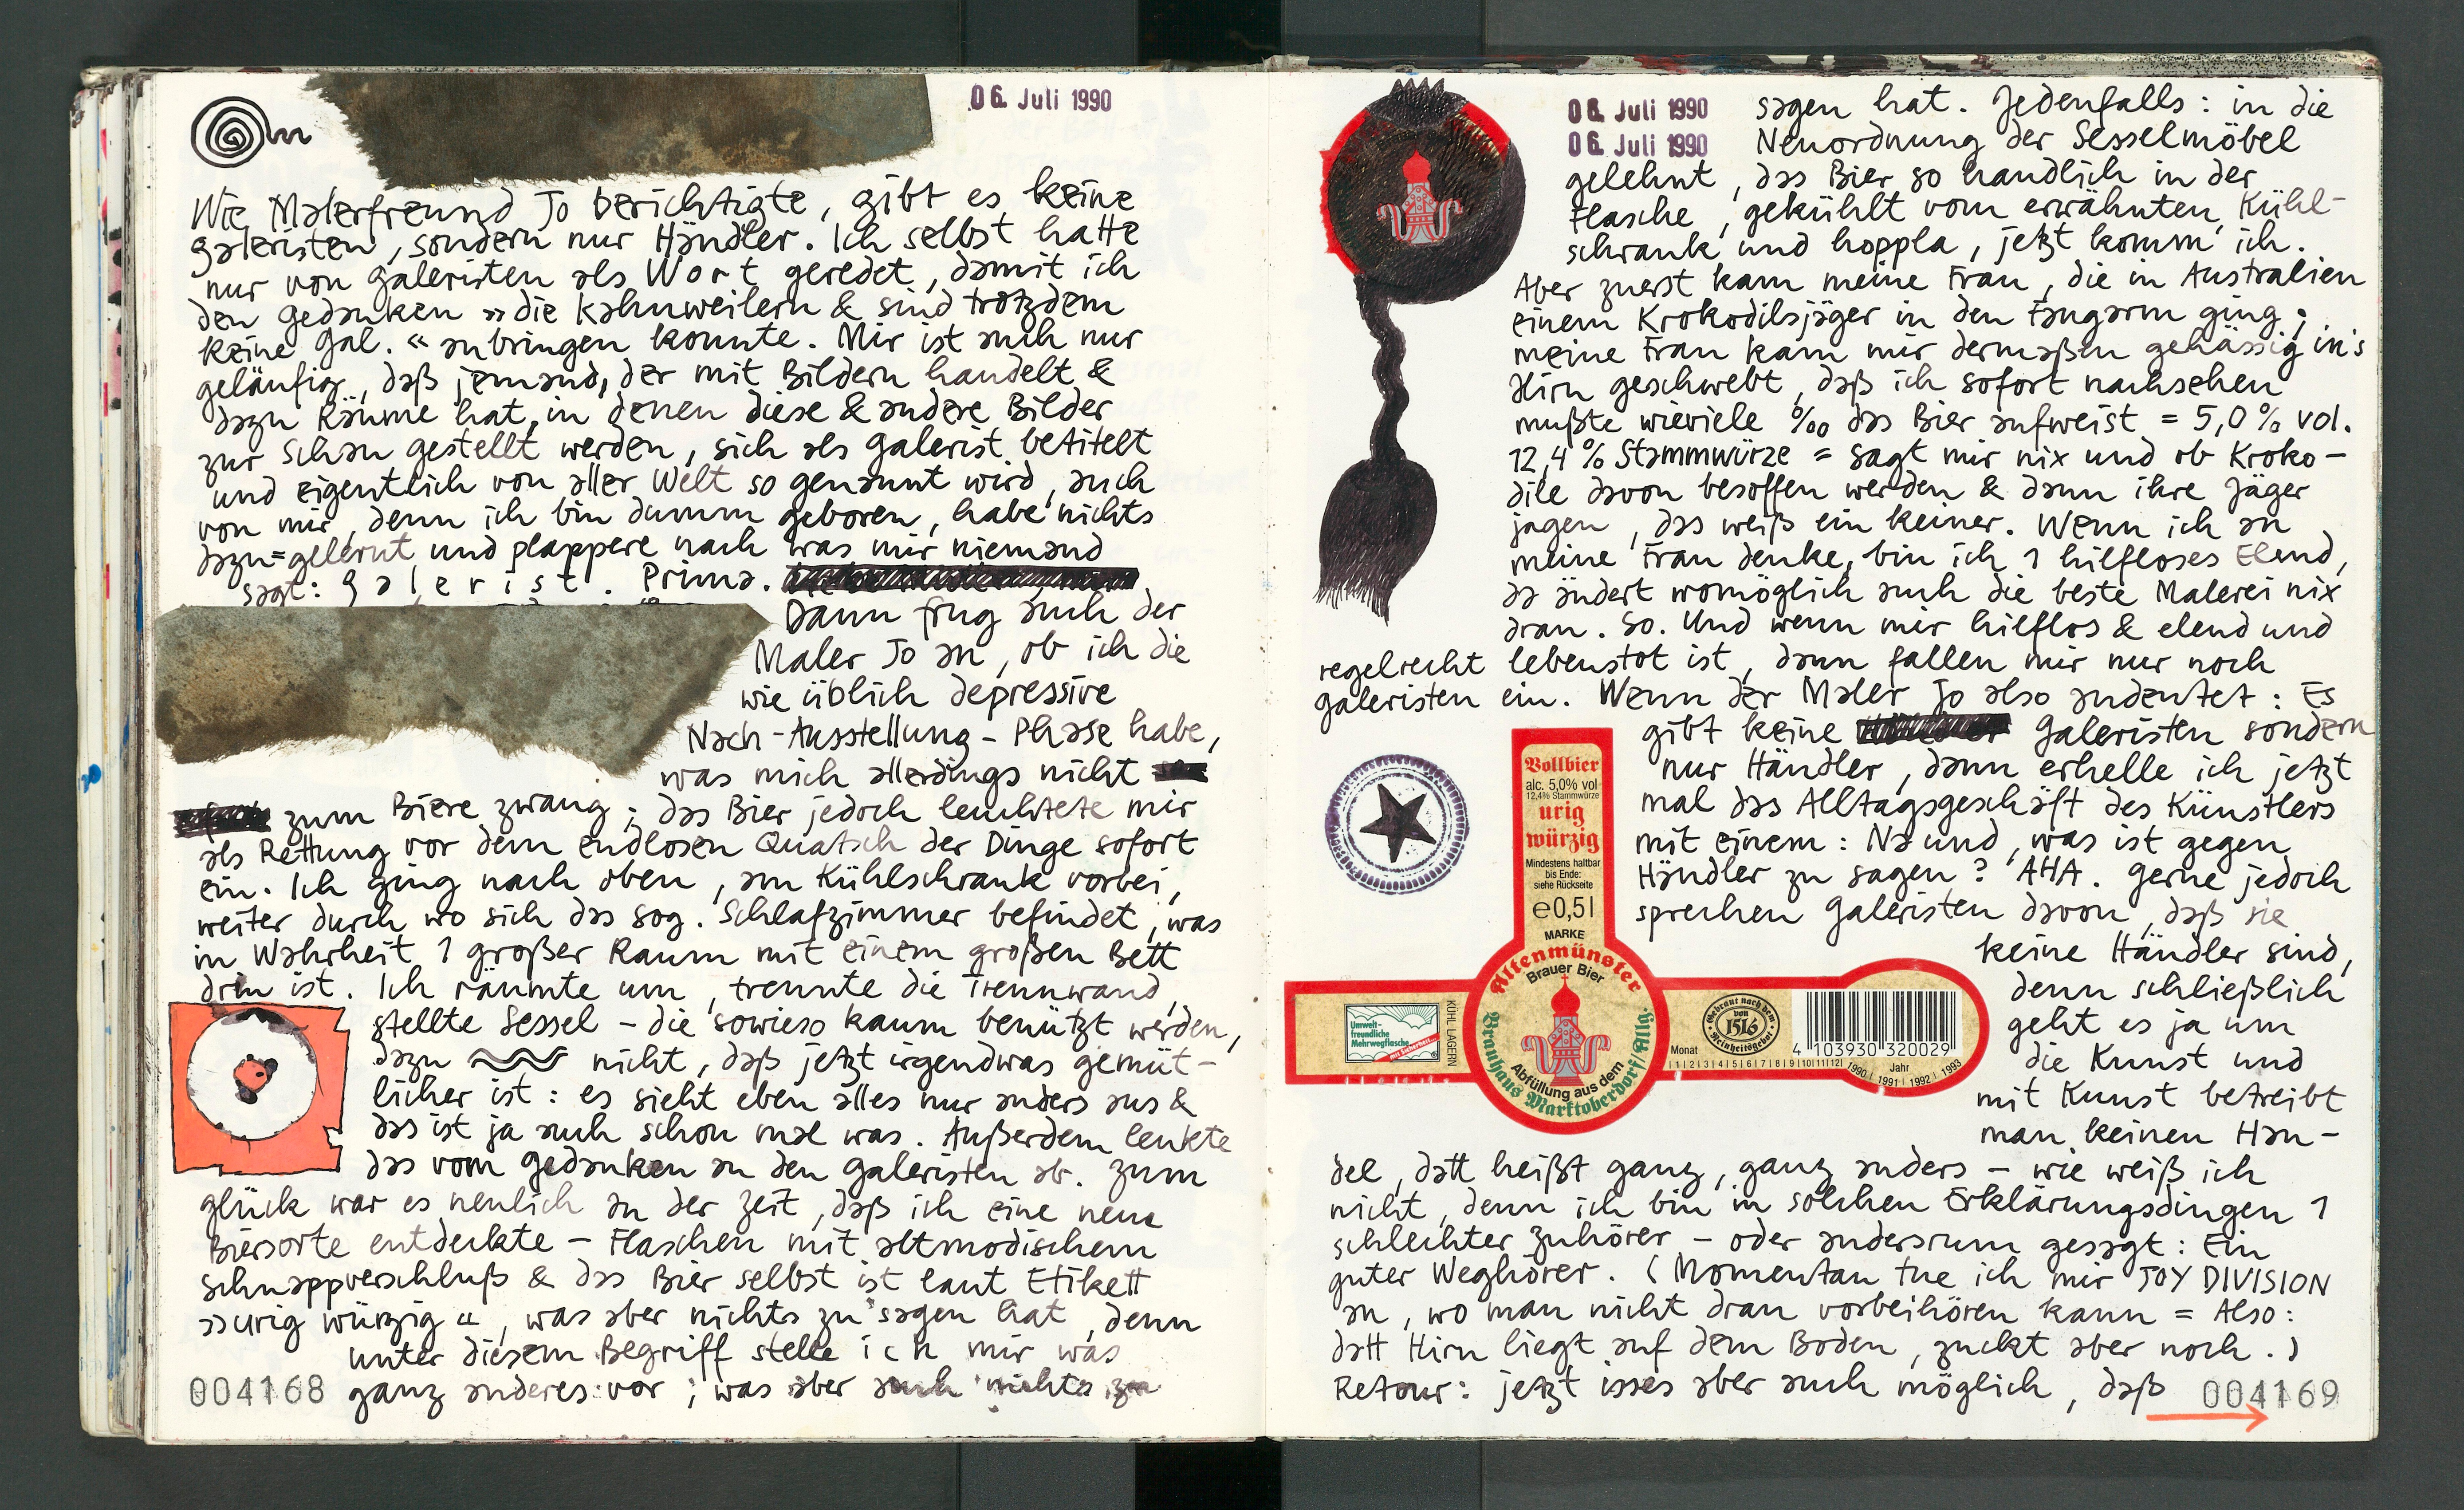 06. Juli 1990
Wie Malerfreund Jo berichtigte, gibt es keine
Galeristen, sondern nur Händler. Ich selbst hatte
nur von Galeristen als Wort geredet, damit ich
den Gedanken »die kahnweilern & sind trotzdem
keine Gal.« anbringen konnte. Mir ist auch nur
geläufig, daß jemand, der mit Bildern handelt &
dazu Räume hat, in denen diese & andere Bilder
zur Schau gestellt werden, sich als Galerist betitelt
und eigentlich von aller Welt so genannt wird, auch
von mir, denn ich bin dumm geboren, habe nichts
dazu=gelernt und plappere nach was mir niemand
sagt: Galerist. Prima.
Dann frug auch der
Maler Jo an, ob ich die
wie üblich depressive
Nach-Ausstellung-Phase habe,
was mich allerdings nicht
zum Biere zwang; das Bier jedoch leuchtete mir
als Rettung vor dem endlosen Quatsch der Dinge sofort
ein. Ich ging nach oben, am Kühlschrank vorbei,
weiter durch wo sich das sog. Schlafzimmer befindet, was
in Wahrheit 1 großer Raum mit einem großen Bett
drin ist. Ich räumte um, trennte die Trennwand,
stellte Sessel – die sowieso kaum benützt werden,
dazu nicht, daß jetzt irgendwas gemüt-
licher ist: es sieht eben alles nur anders aus &
das ist ja auch schon mal was. Außerdem lenkte
das vom Gedanken an den Galeristen ab. Zum
Glück war es neulich an der Zeit, daß ich eine neue
Biersorte entdeckte – Flaschen mit altmodischem
Schnappverschluß & das Bier selbst ist laut Etikett
»urig würzig«, was aber nichts zu sagen hat, denn
unter diesem Begriff stelle ich mir was
ganz anderes vor; was aber auch nichts zu
004168
06. Juli 1990
06. Juli 1990
sagen hat. Jedenfalls: in die
Neuordnung der Sesselmöbel
gelehnt, das Bier so handlich in der
Flasche, gekühlt vom erwähnten Kühl-
schrank und hoppla, jetzt komm' ich.
Aber zuerst kam meine Frau, die in Australien
einem Krokodilsjäger in den Fangarm ging;
meine Frau kam mir dermaßen gehässig in's
Hirn geschwebt, daß ich sofort nachsehen
mußte wieviele ‰ das Bier aufweist = 5,0% vol.
12,4% Stammwürze = sagt mir nix und ob Kroko-
dile davon besoffen werden & dann ihre Jäger
jagen, das weiß ein keiner. Wenn ich an
meine Frau denke, bin ich 1 hilfloses Elend,
da ändert womöglich auch die beste Malerei nix
dran. So. Und wenn mir hilflos & elend und
regelrecht lebenstot ist, dann fallen mir nur noch
Galeristen ein. Wenn der Maler Jo also andeutet: Es
gibt keine Galeristen sondern
nur Händler, dann erhelle ich jetzt
mal das Alltagsgeschäft des Künstlers
mit einem: Na und, was ist gegen
Händler zu sagen? AHA. Gerne jedoch
sprechen Galeristen davon, daß sie
keine Händler sind,
denn schließlich
geht es ja um
die Kunst und
mit Kunst betreibt
man keinen Han-
del, datt heißt ganz, ganz anders – wie weiß ich
nicht, denn ich bin in solchen Erklärungsdingen 1
schlechter Zuhörer – oder andersrum gesagt: Ein
guter Weghörer. (Momentan tue ich mir JOY DIVISION
an, wo man nicht dran vorbeihören kann = Also:
datt Hirn liegt auf dem Boden, zuckt aber noch.)
Retour: jetzt isses aber auch möglich, daß
004169
Vollbier
alc. 5,0% vol
12,4% Stammwürze
urig
würzig
Mindestens haltbar
bis Ende:
siehe Rückseite
e0,5l
MARKE
Altenmünster
Brauer Bier
Abfüllung aus dem
Brauhaus Marktoberdorf/Allg.
Umwelt-
freundliche
Mehrwegflasche
KÜHL LAGERN
Gebraut nach dem
von
1516
Reinheitsgebot
4 103930 320029
Monat
1|2|3|4|5|6|7|8|9|10|11|12|
Jahr
1990 | 1991 | 1992 | 1993